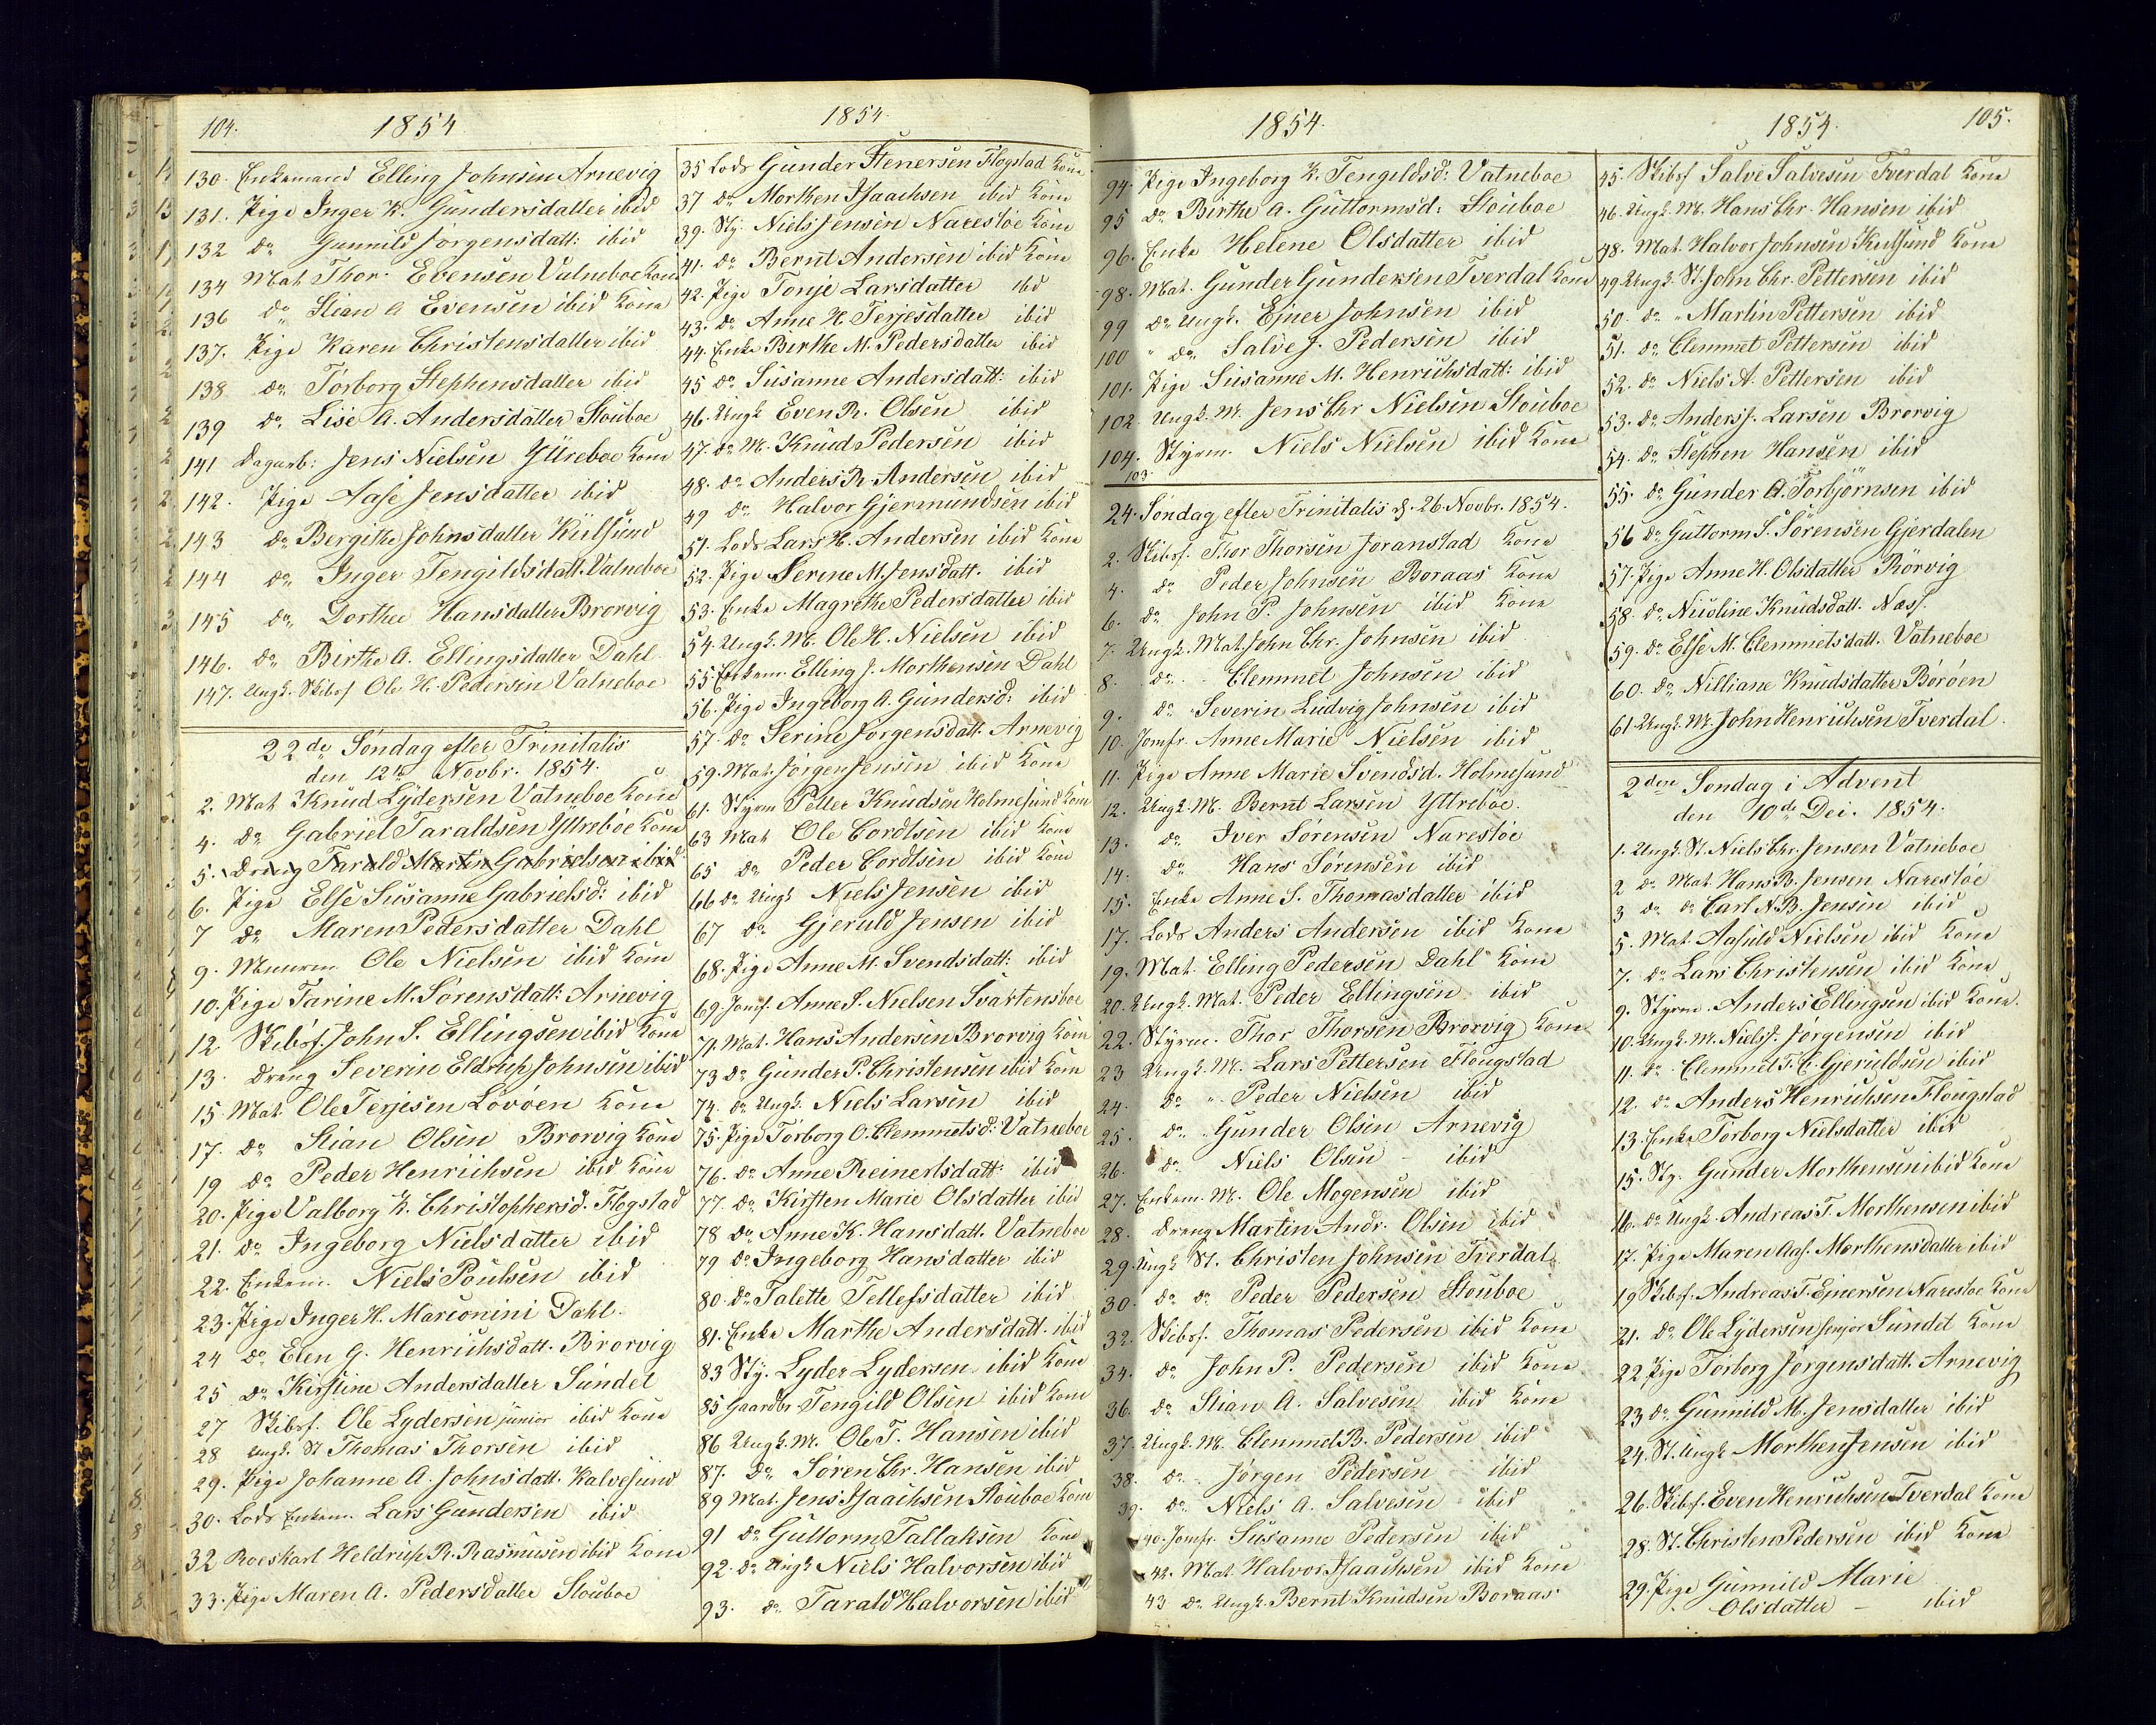 104.
1854
130. Enkemand Elling Johnsen Arnevig
131. Pige Inger K. Gundersdatter ibid
132 do Gunnild Jørgensdatt: ibid
134 Mat Thor Evensen Vatneboe Kone
136 do Stian A Evensen ibid Kone
137. Pige Karen Christensdatter ibid
138 do Torborg Stephensdatter ibid
139 do Lise A. Andersdatter Stouboe
141 Dagarb: Jens Nielsen Yttreboe Kone
142. Pige Aase Jensdatter ibid
143 do Bergithe Johnsdatter Kulsund
144 do Inger Tengildsdatt. Vatneboe
145 do Dorthea Hansdatter Brorvig
146. do Birthe A. Ellingsdatter Dahl
147. Ungk. Skibsf Ole H. Pedersen Vatneboe
22de Søndag efter Trinitatis
den 12te Novbr. 1854.
2. Mat Knud Lydersen Vatneboe Kone
4. do Gabriel Taraldsen Yttreboe Kone
5. Dreng Tarald Martin Gabrielsen ibid
6. Pige Else Susanne Gabrielsd: ibid
7 do Maren Pedersdatter Dahl
9. Muurm Ole Nielsen ibid Kone
10. Pige Tarine M. Sørensdatt: Arnevig
12. Skibsf. John S. Ellingsen ibid Kone
13. Dreng Severin Eldrup Johnsen ibid
15 Mat Ole Terjesen Løvøen Kone
17. do Stian Olsen Brorvig Kone
19 do Peder Henrichsen ibid Kone
20. Pige Valborg K. Christophersd. Flogstad
21. do Ingeborg Nielsdatter ibid
22. Enkem. Niels Poulsen ibid
23. Pige Inger H. Marconini Dahl.
24 do Elen G. Henrichsdatt. Brorvig
25 do Kirstine Andersdatter Sundet
27 Skibsf. Ole Lydersen junior ibid Kone
28 Ungk. St Thomas Thorsen ibid
29. Pige Johanne A. Johnsdatt. Kalvesund
30. Lods Enkem. Lars Gundersen ibid
32 Roeskarl Heldrup R. Rasmusen ibid Kone
33. Pige Maren A. Pedersdatter Stouboe
1854
35 Lods Gunder Stenersen Flogstad Kone
37 do Morthen Isaachsen ibid Kone
39. Sty. Niels Jensen Narestøe Kone
41. do Bernt Andersen ibid Kone
42. Pige Tonje Larsdatter ibd
43. do Anne H. Terjesdatter ibid
44. Enke Birthe M. Pedersdatter ibid
45 do Susanne Andersdatt: ibid
46. Ungk Even R. Olsen ibid
47. do M. Knud Pedersen ibid
48. do Anders R. Andersen ibid
49 do Halvor Gjermundsen ibid
51. Lods Lars H. Andersen ibid Kone
52. Pige Serine M. Jensdatt. ibid
53. Enke Magrethe Pedersdatter ibid
54. Ungk. M. Ole H. Nielsen ibid
55. Enkem. Elling J. Morthensen Dahl
56. Pige Ingeborg A. Gundersd: ibid
57. do Serine Jørgensdatt. Arnevig
59. Mat. Jørgen Jensen ibid Kone
61. Styrm Petter Knudsen Holmesund Kone
63 Mat Ole Cordtsen ibid Kone
65 do Peder Cordtsen ibid Kone
66 do Ungk Niels Jensen ibid
67 do Gjeruld Jensen ibid
68. Pige Anne M. Svendsdatt: ibid
69. Jomf. Anne S. Nielsen Svartensboe
71. Mat. Hans Andersen Brorvig Kone
73 do Gunder P. Christensen ibid Kone
74. do Ungk. Niels Larsen ibid
75. Pige Torborg O. Clemmetsd: Vatneboe
76. do Anne Reinertsdatt: ibid
77. do Kirsten Marie Olsdatter ibid
78 do Anne K. Hansdatt. Vatneboe
79 do Ingeborg Hansdatter ibid
80. do Talette Tellefsdatter ibid
81. Enke Marthe Andersdatt. ibid
83 Sty: Lyder Lydersen ibid Kone
85 Gaardbr Tengild Olsen ibid Kone
86 Ungk. M. Ole T. Hansen ibid
87. do Søren Chr. Hansen ibid
89 Mat. Jens Isaachsen Stouboe Kone
91 do Guttorm Tallaksen Kone
92. do Ungk Niels Halvorsen ibid
93. do Tarald Halvorsen ibid
1854.
94. Pige Ingeborg K. Tengildsd: Vatneboe
95 do Birthe A. Guttormsd: Stouboe
96. Enke Helene Olsdatter ibid
98. Mat. Gunder Gundersen Tverdal Kone
99 do Ungk. Ejner Johnsen ibid
100 " do Salve J. Pedersen ibid
101. Pige Susanne M. Henrichsdatt: ibid
102. Ungk. M. Jens Chr Nielsen Stouboe
104. Styrm. Niels Nielsen ibid Kone
103.
24. Søndag efter Trinitatis d. 26. Novbr. 1854.
2. Skibsf. Thor Thorsen Joranstad Kone
4. do Peder Johnsen Boraas Kone
6. do John P. Johnsen ibid Kone
7. Ungk. Mat. John Chr. Johnsen ibid
8. do Clemmet Johnsen ibid
9. do Severin Ludvig Johnsen ibid
10. Jomfr. Anne Marie Nielsen ibid
11. Pige Anne Marie Svendsd. Holmesund
12. Ungk. M. Bernt Larsen Yttreboe.
13. do Iver Sørensen Narestøe
14. do Hans Sørensen ibid
15. Enke Anne S. Thomasdatter ibid
17. Lods Anders Andersen ibid Kone
19. Mat. Elling Pedersen Dahl Kone
20. Ungk. Mat. Peder Ellingsen ibid
22. Styrm. Thor Thorsen Brorvig Kone
23 Ungk. M. Lars Pettersen Flougstad
24. do " Peder Nielsen ibid
25. do Gunder Olsen Arnevig
26. do Niels Olsen - ibid
27. Enkem. M. Ole Mogensen ibid
28. Dreng Martin Andr. Olsen ibid
29. Ungk St. Christen Johnsen Tverdal
30. do do Peder Pedersen Stouboe
32. Skibsf. Thomas Pedersen ibid Kone
34. do John P. Pedersen ibid Kone
36. do Stian A. Salvesen ibid Kone
37. Ungk. M. Clemmet B. Pedersen ibid
38. do Jørgen Pedersen ibid
39. do Niels A. Salvesen ibid
40. Jomfr. Susanne Pedersen ibid
42. Mat. Halvor Isaachsen ibid Kone
43 do Ungk. Bernt Knudsen Boraas
1854.
105.
45. Skibsf Salve Salvesen Tverdal Kone
46. Ungk. M. Hans Chr. Hansen ibid
48. Mat. Halvor Johnsen Kulsund Kone
49 Ungk. St. John Chr. Pettersen ibid
50. do " Martin Pettersen ibid
51. do Clemmet Pettersen ibid
52. do Niels A. Pettersen ibid
53. do Anders J. Larsen Brorvig
54. do Stephen Hansen ibid
55. do Gunder A. Torbjørnsen ibid
56 do Guttorm S. Sørensen Gjerdalen
57. Pige Anne H. Olsdatter Rörvig
58. do Nicoline Knudsdatt. Næss.
59. do Else M. Clemmetsdatt. Vatneboe
60. do Nilliane Knudsdatter Børøen
61. Ungk. M. John Henrichsen Tverdal.
2den Søndag i Advent
den 10de Dec. 1854.
1. Ungk. St. Niels Chr. Jensen Vatneboe
2 do Mat. Hans B. Jensen Narestøe
3 do do Carl N. B. Jensen ibid
5. Mat. Aasuld Nielsen ibid Kone
7. do Lars Christensen ibid Kone
9. Styrm. Anders Ellingsen ibid Kone.
10. Ungk. M. Niels J. Jørgensen ibid
11. do Clemmet T. C. Gjeruldsen ibid
12. do Anders Henrichsen Flougstad
13. Enke Torborg Nielsdatter ibid
15. Sty. Gunder Morthensen ibid Kone
16. do Ungk. Andreas T. Morthensen ibid
17. Pige Maren Aas. Morthensdatter ibid
19 Skibsf. Andreas T. Ejnersen Narestøe Kone
21. do Ole Lydersen senjor Sundet Kone
22 Pige Torborg Jørgensdatt. Arnevig
23 do Gunnild M. Jensdatter ibid
24. St. Ungk Morthen Jensen ibid
26. Skibsf. Even Henrichsen Tverdal Kone
28. St. Christen Pedersen ibid Kone
29. Pige Gunnild Marie
Olsdatter - ibid